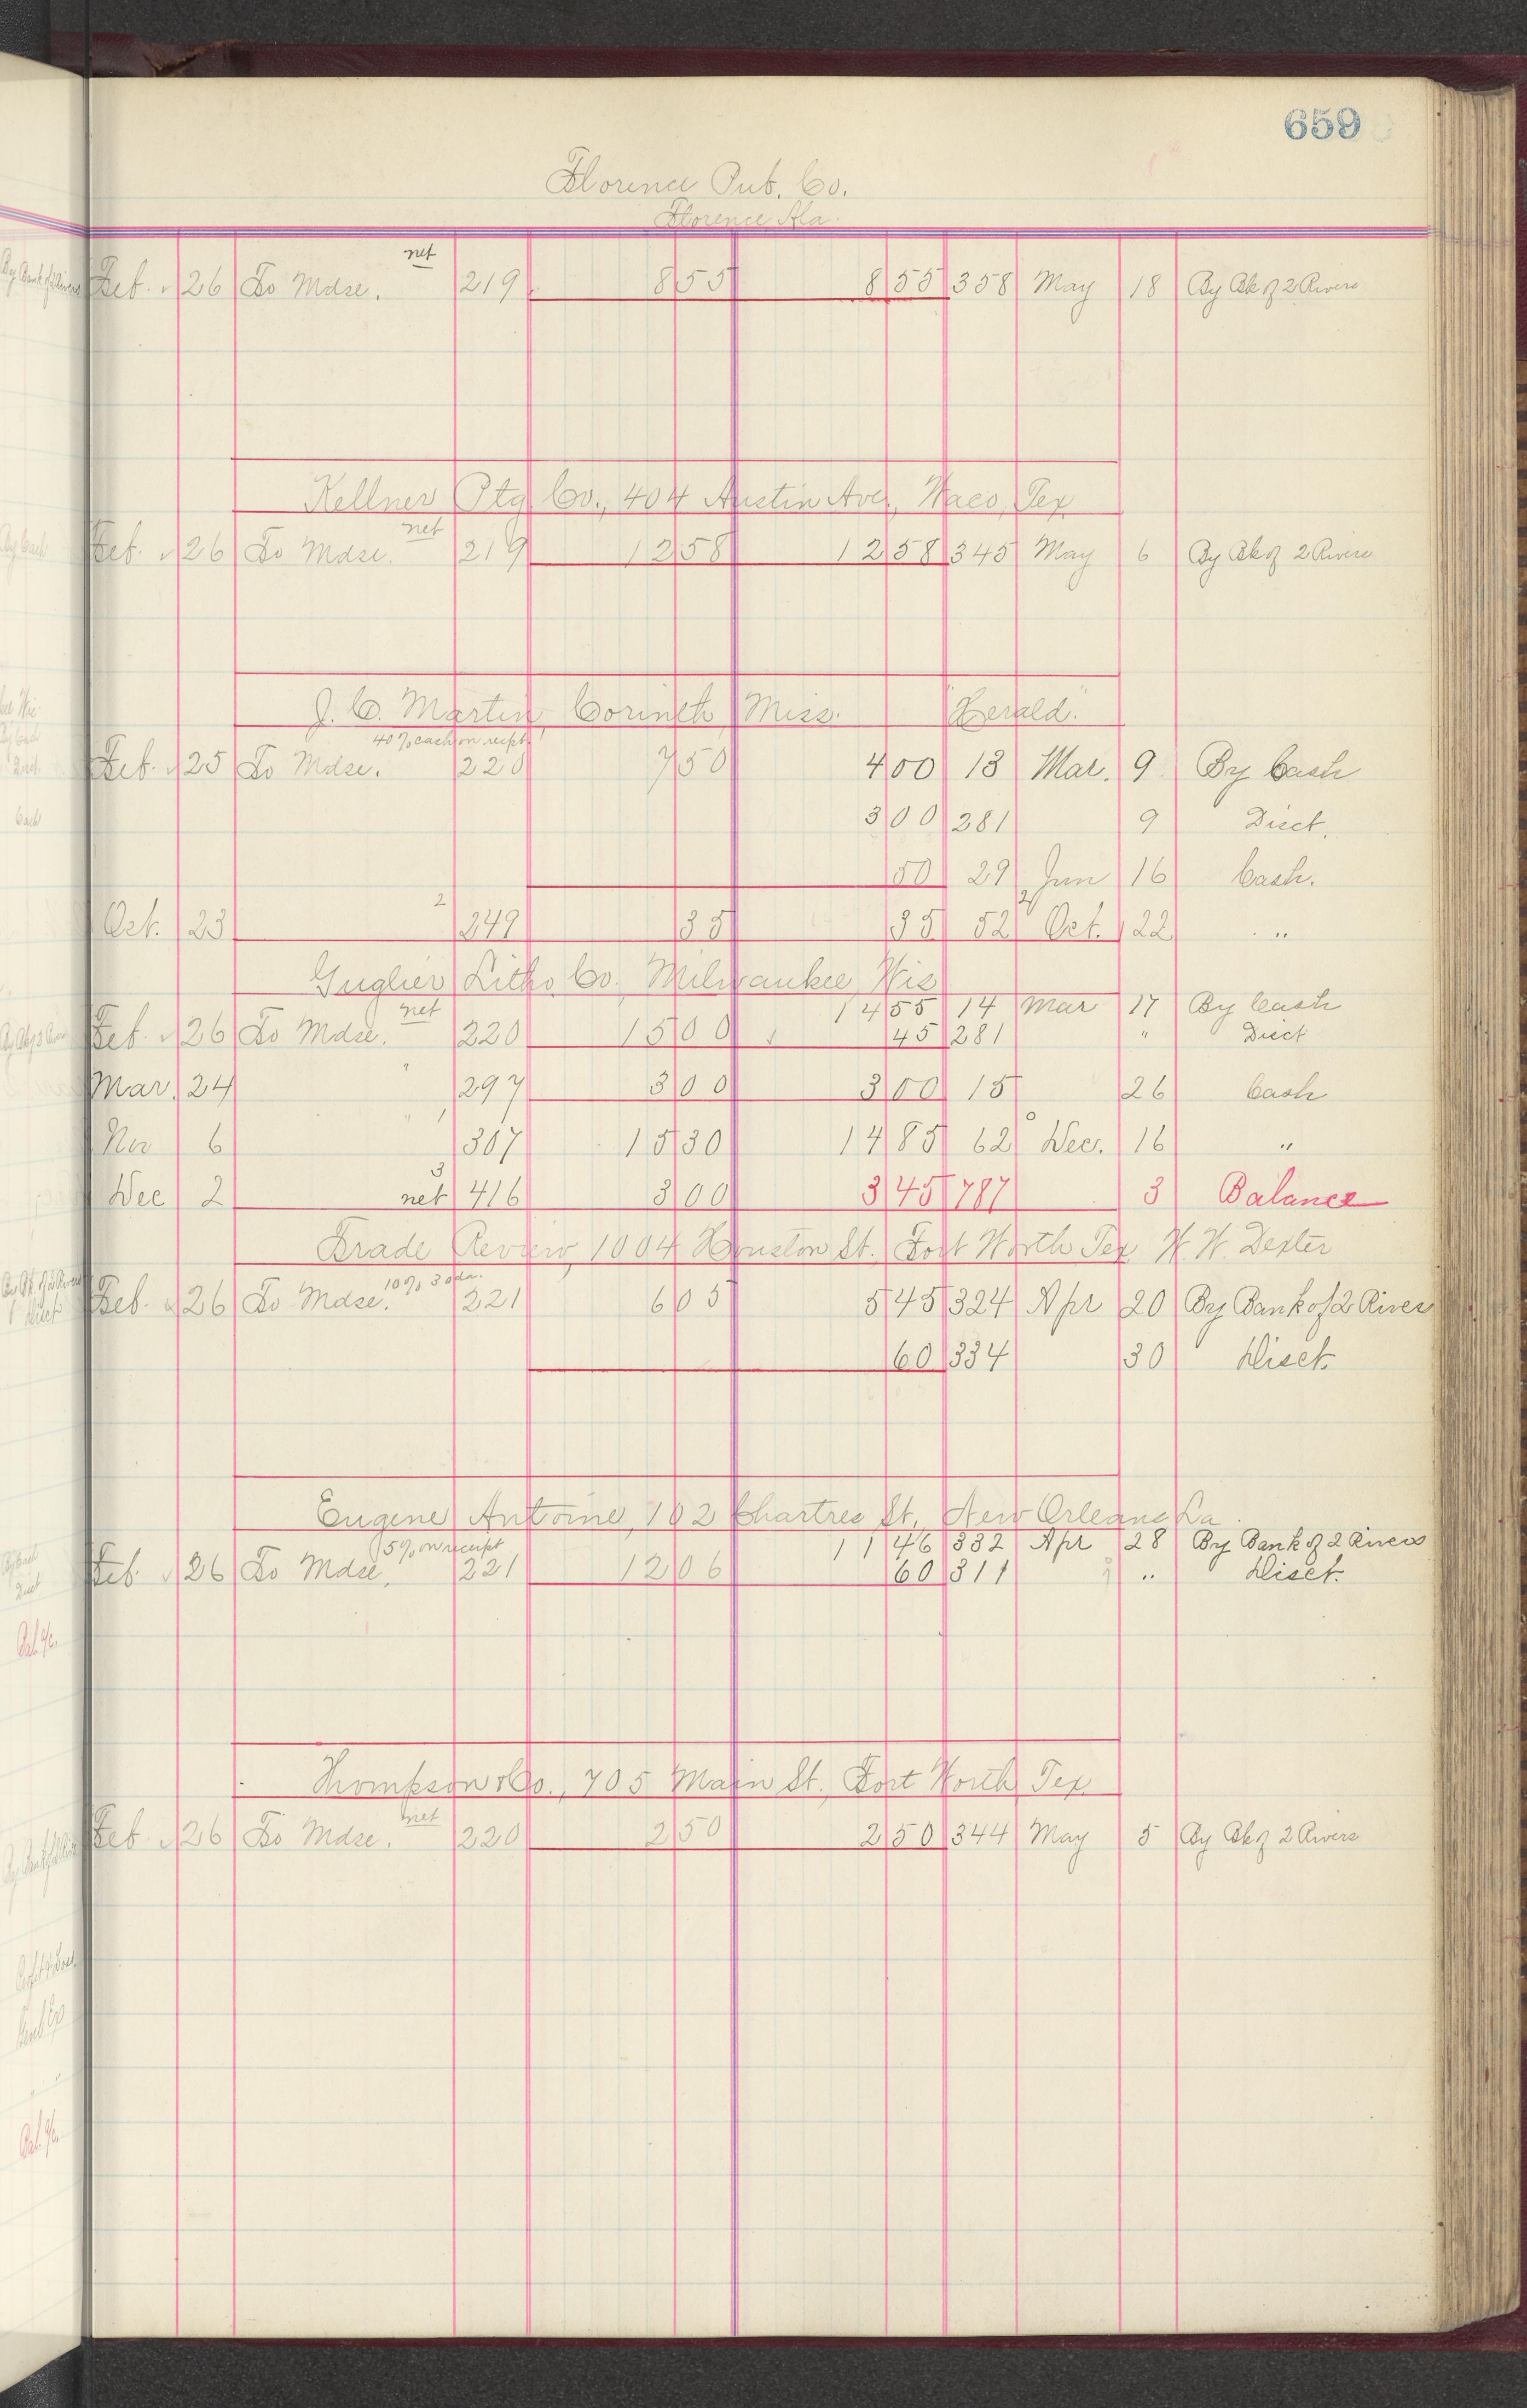 659
Florence Pub. Co.
Florence Ala.
net
Feb. 26 To Mdse. 219 8 55 8 55 358 May 18 By Bk of 2 Rivers
Kellner Ptg Co., 404 Austin Ave., Waco, Tex
net
Feb. 26 To Mdse. 219 12 58 12 58 345 May 6 By Bk of 2 Rivers
J. C. Martin, Corinth Miss. "Herald."
40% cash on recpt.
Feb. 25 To Mdse. 220 7 50 4 00 13 Mar. 9 By Cash
3 00 281 9 Disct.
50 29 Jun 16 Cash.
2 2
Oct. 23 249 35 35 52 Oct. 22 "
Guglier Litho Co. Milwaukee, Wis
net 14 55 14 Mar 17 By Cash
Feb. 26 To Mdse. 220 15 00 45 281 " Disct
Mar. 24 " 297 3 00 3 00 15 26 Cash
Nov 6 " 307 15 30 14 85 62 Dec. 16 "
3
Dec 2 net 416 3 00 3 45 787 3 Balance
Trade Review, 1004 Houston St. Fort Worth Tex W. W. Dexter
10% 30 da.
Feb. 26 To Mdse. 221 6 05 5 45 324 Apr 20 By Bank of 2 Rivers
60 334 30 Disct.
Eugene Antoine, 102 Chartres St., New Orleans La.
5% on receipt 11 46 332 Apr 28 By Bank of 2 Rivers
Feb. 26 To Mdse. 221 12 06 60 311 " Disct.
Thompson & Co., 705 Main St., Fort Worth Tex.
net
Feb 26 To Mdse. 220 2 50 2 50 344 May 5 By Bk of 2 Rivers